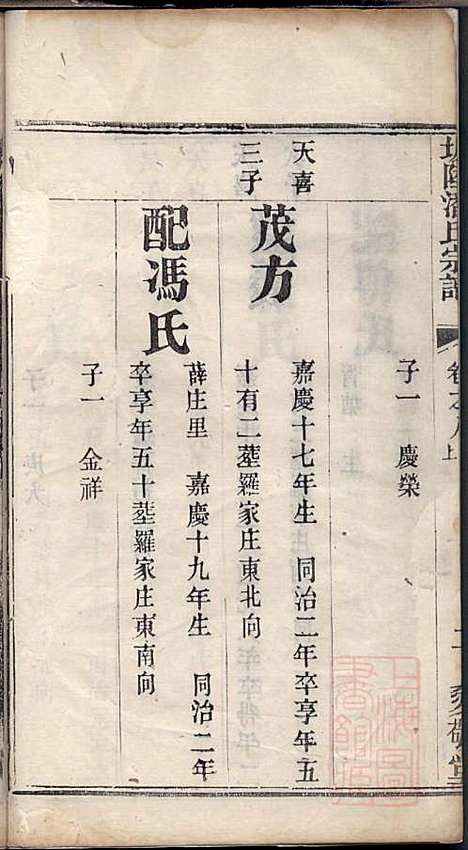 潘氏宗譜
卷之八上
二
敬
子一　慶榮
天喜
三子
茂方
嘉慶十七年生　同治二年卒享年五
十有二塟羅家庄東北向
配馮氏
薛庄里　嘉慶十九年生　同治二年
卒享年五十塟羅家庄東南向
子一　金祥